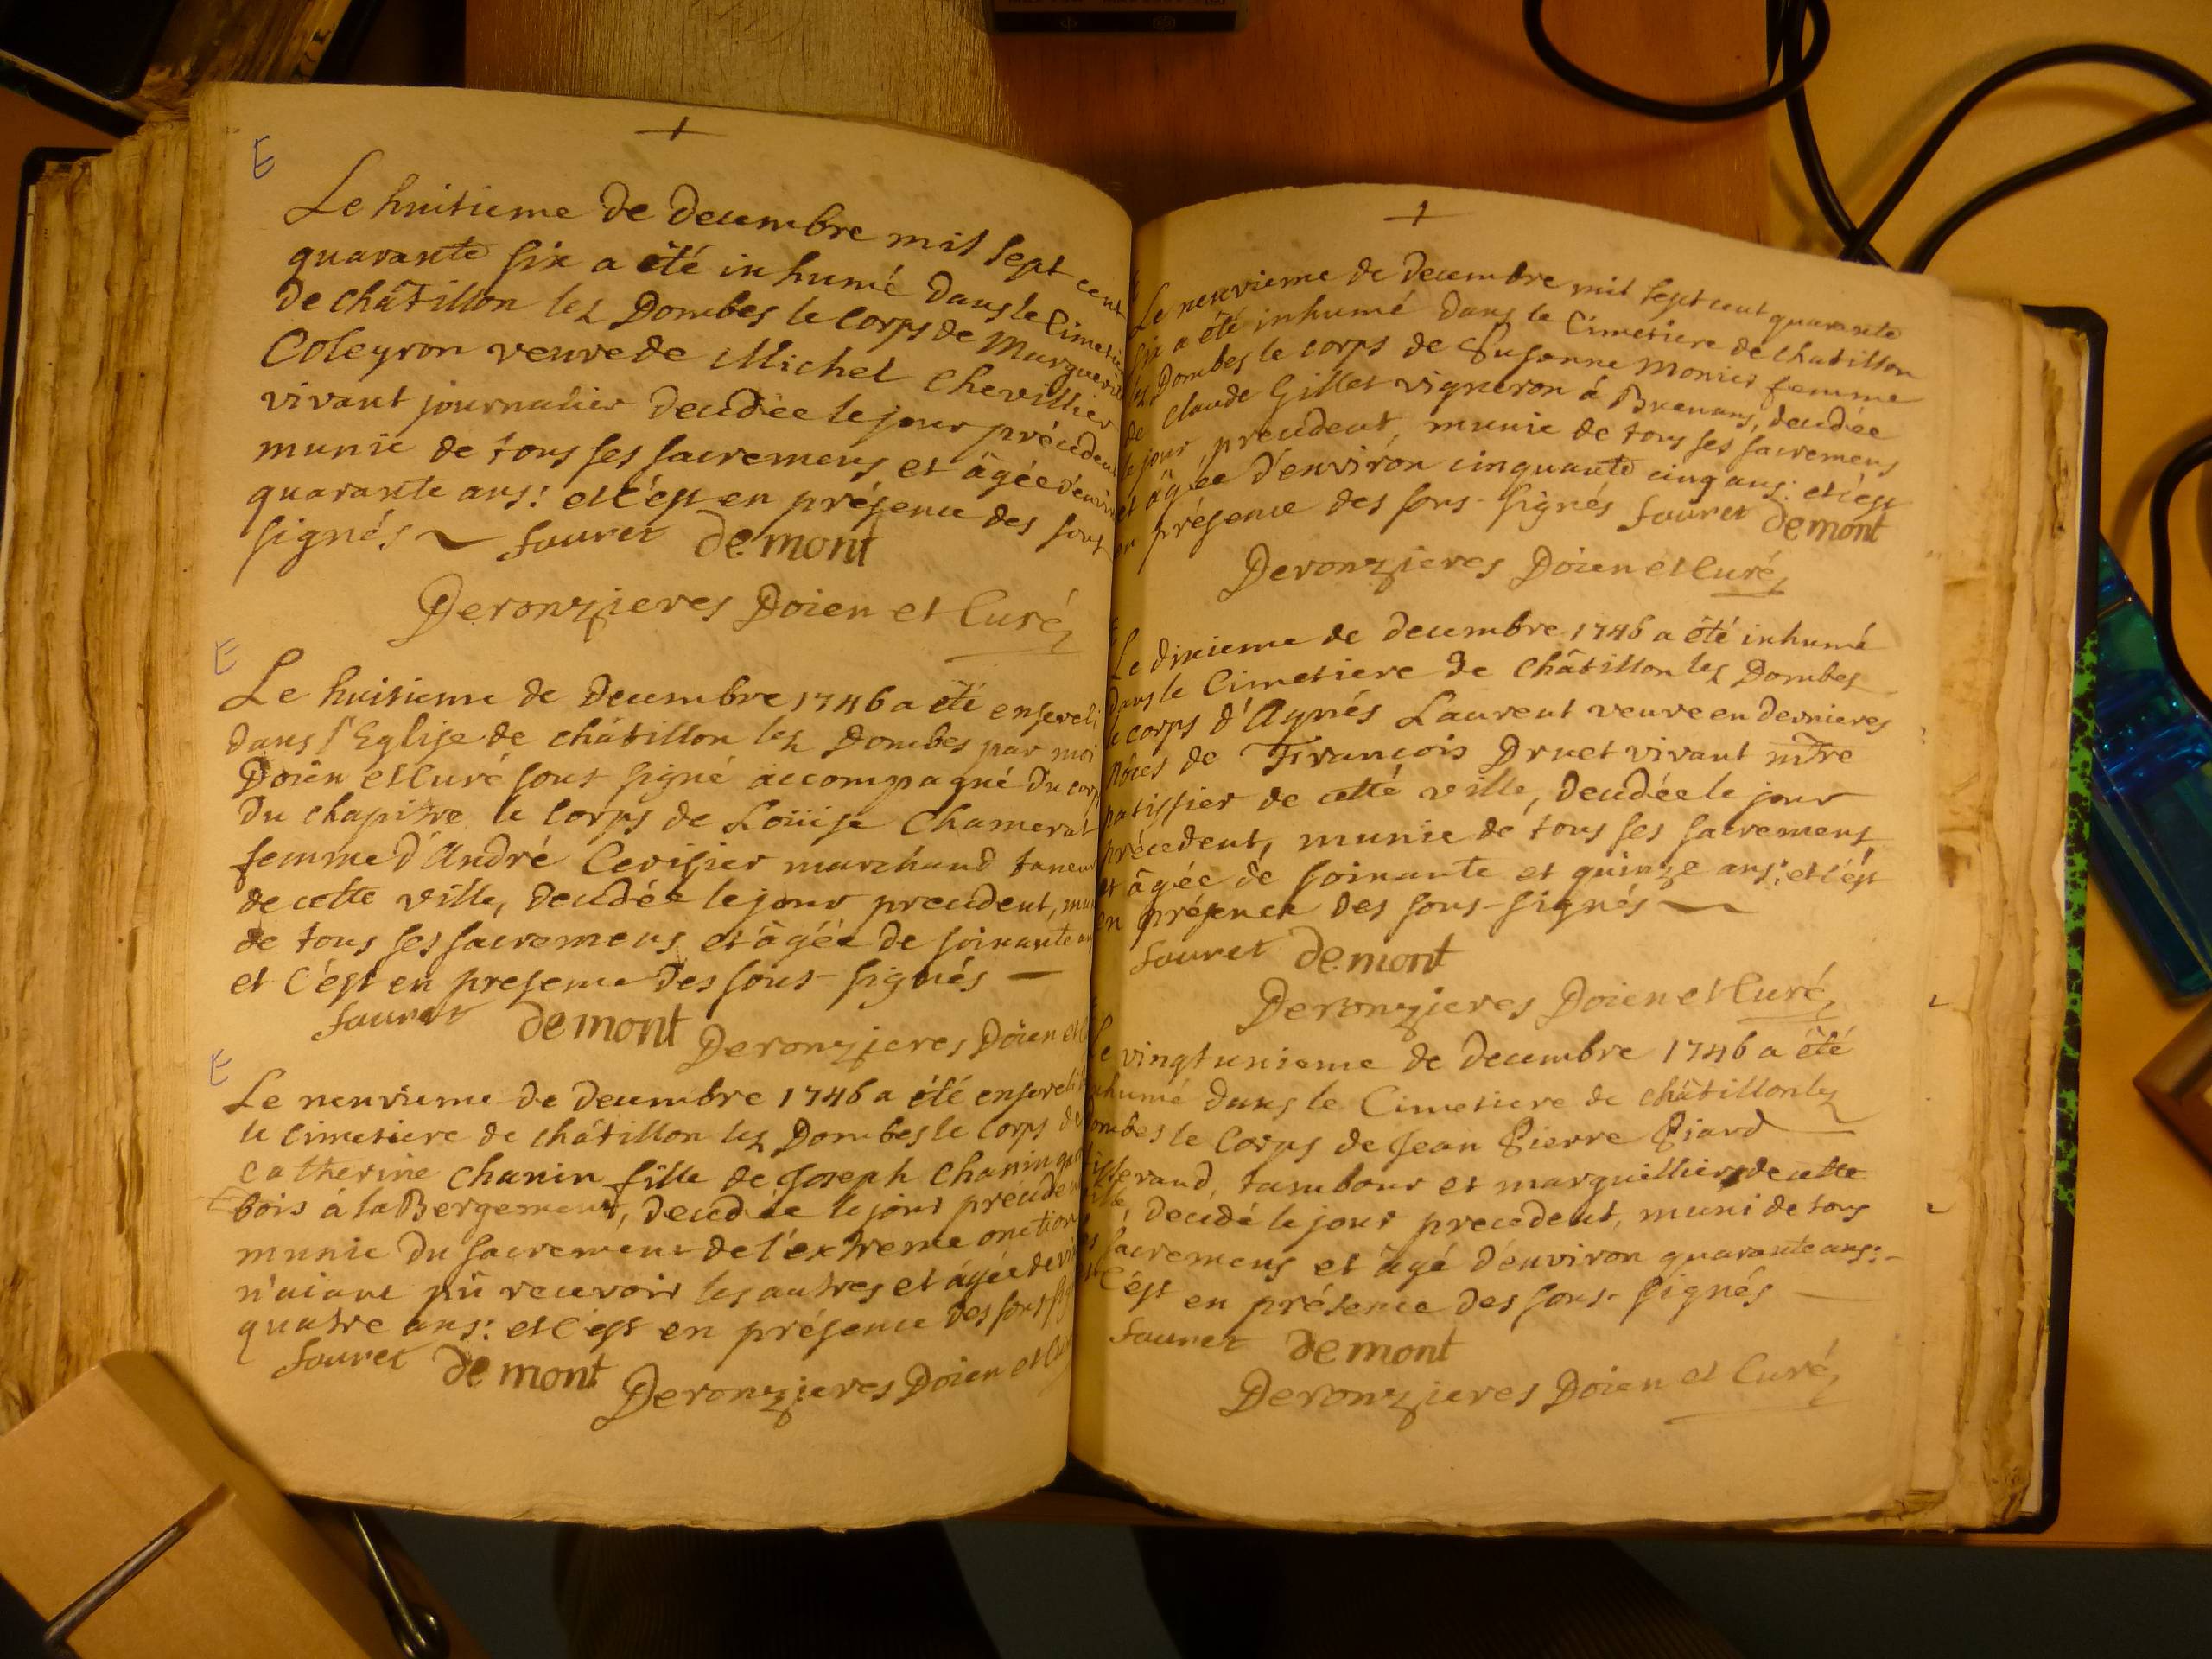 Le huitieme de decembre mil sept cent
quarante six a été inhumé dans le Cimetie
de châtillon les Dombes le corps de Marguerite
Coleyron veuve de Michel Chevillier
vivant journalier decédée le jour précédent
munie de tous ses sacremens et âgée d'envir
quarante ans: et c'est en présence des sous
signés fauret demont
Deronzieres Doien et Curé
Le huitieme de decembre 1746 a été enseveli
dans l'Eglise de châtillon les Dombes par moi
Doien et Curé sous signé accompagné du corp
du chapitre le corps de Loüise Chamerat
femme d'André Cerisier marchand taneur
de cette ville, decédée le jour precedent, mu
de tous ses sacremens et âgée de soixante an
et c'est en presence des sous-signés
fauret demont Deronzieres Doien et C
Le neuvieme de decembre 1746 a été enseveli
le cimetiere de châtillon les Dombes le corps de
Catherine Chanin fille de Joseph Chanin
bois à la Bergement, decédée le jour préceden
munie du sacrement de l'extreme onction
n'aiant pû recevoir les autres et âgée de vin
quatre ans: et c'est en présence des sous sig
fauret demont Deronzieres Doien et Cu
Le neuvieme de decembre mil sept cent quarante
six a été inhumé dans le Cimetiere de chatillon
les Dombes le corps de Susanne Monier femme
de claude Gillet vigneron à Buenans, decédée
le jour precedent, munie de tous ses sacremens
et âgée d'environ cinquante cinq ans: et c'est
en présence des sous-signés fauret demont
Deronzieres Doien et Curé
Le dixieme de decembre 1746 a été inhumé
dans le Cimetiere de châtillon les Dombes
le corps d'Agnés Laurent veuve en dernieres
nôces de François Druet vivant mtre
patissier de cette ville, decédée le jour
précedent, munie de tous ses sacremens
et âgée de soixante et quinze ans: et c'est
en présence des sous-signés
fauret demont
Deronzieres Doien et Curé
Le vingtunieme de decembre 1746 a été
inhumé dans le Cimetiere de châtillon les
ombes le Corps de Jean Pierre Piard
tisserand, tambour et marguillier de cette
ville, decédé le jour precedent, muni de tous
es sacremens et âgé d'environ quarante ans:
et c'est en présence des sous-signés
fauret demont
Deronzieres Doien et Curé